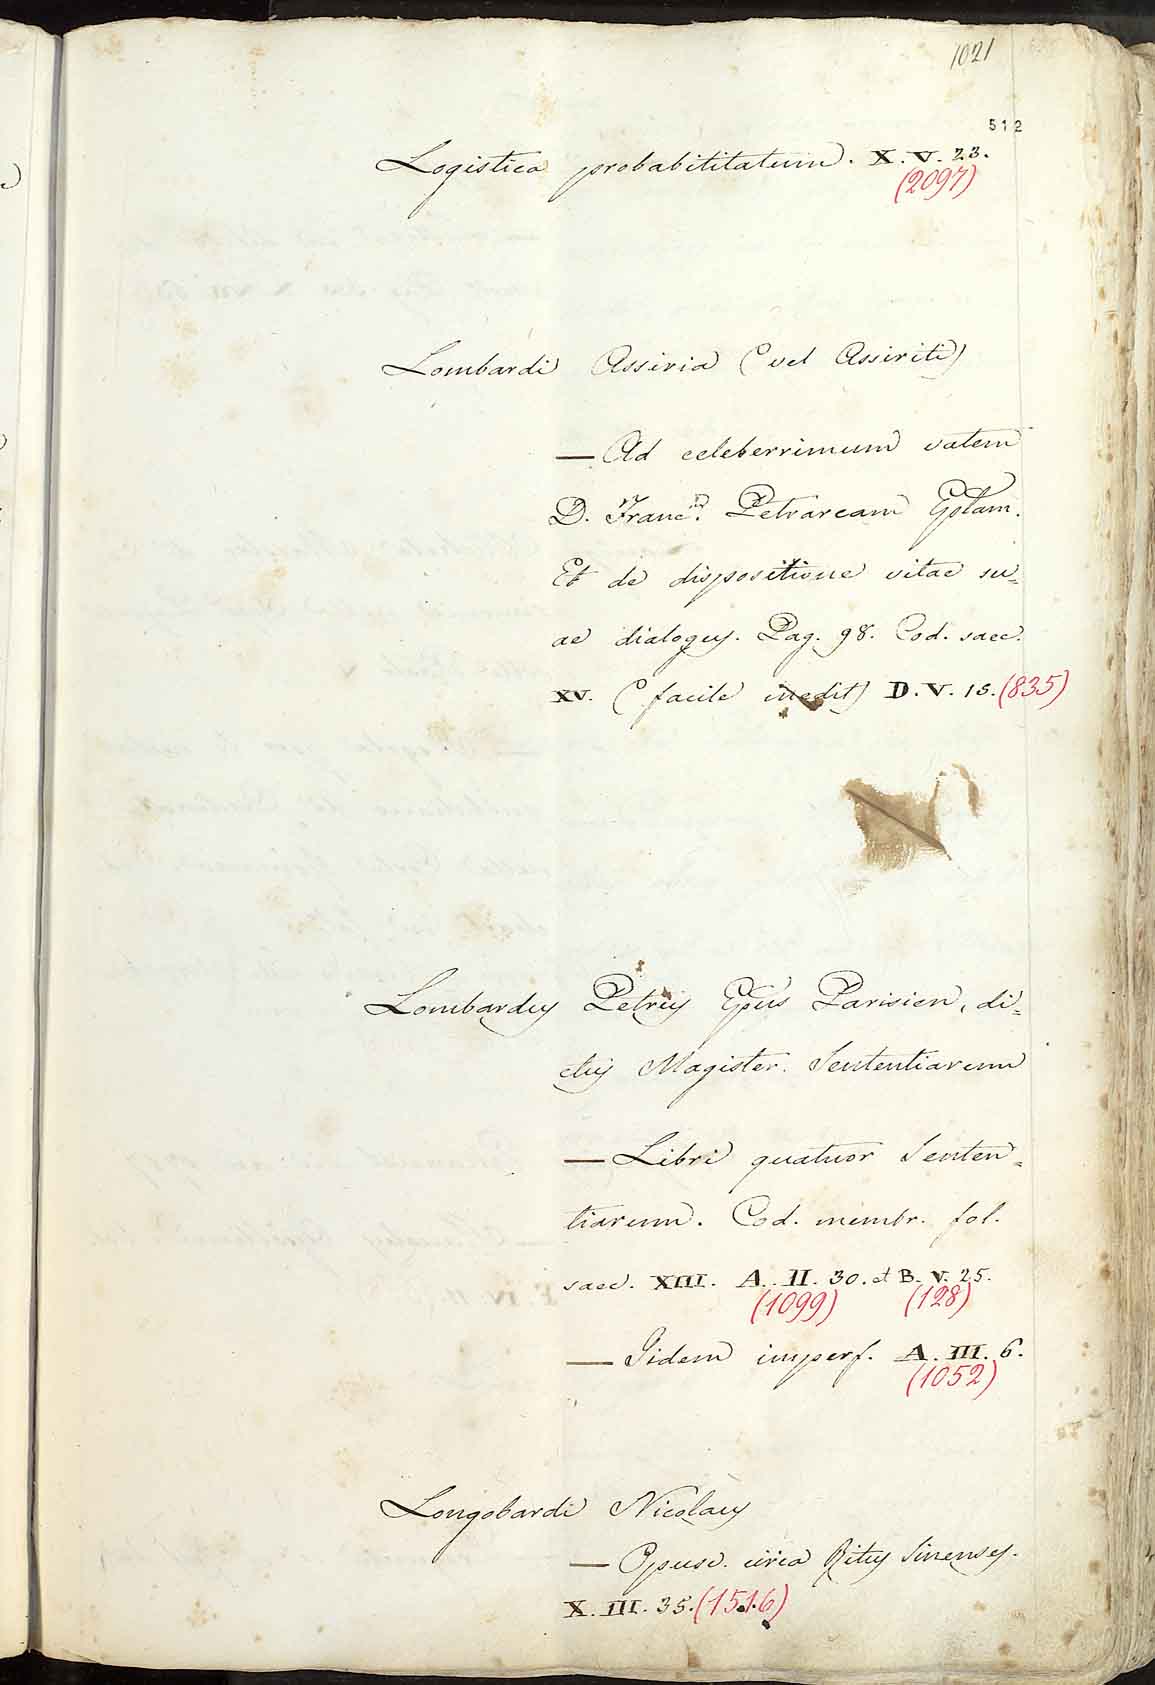 1021
512
Logistica probabititatum. X. V. 23.
(2097)
Lombardi Assiria (vel Assiriti)
— Ad celeberrimum vatem
D. Franc.m Petrarcam Eplam.
Et de dispositione vitae su=
ae dialogus. Pag. 98. Cod. saec.
XV. (facile inedit) D. V. 15. (835)
Lombardus Petrus Epus Parisien, di=
ctus Magister Sententiarum
— Libri quatuor Senten=
tiarum. Cod. membr. fol.
saec. XIII. A. II. 30. et B. V. 25.
(1099) (128)
— Iidem imperf. A. III. 6.
(1052)
Longobardi Nicolaus
— Opusc. circa Ritus Sinenses.
X. III. 35. (1516)